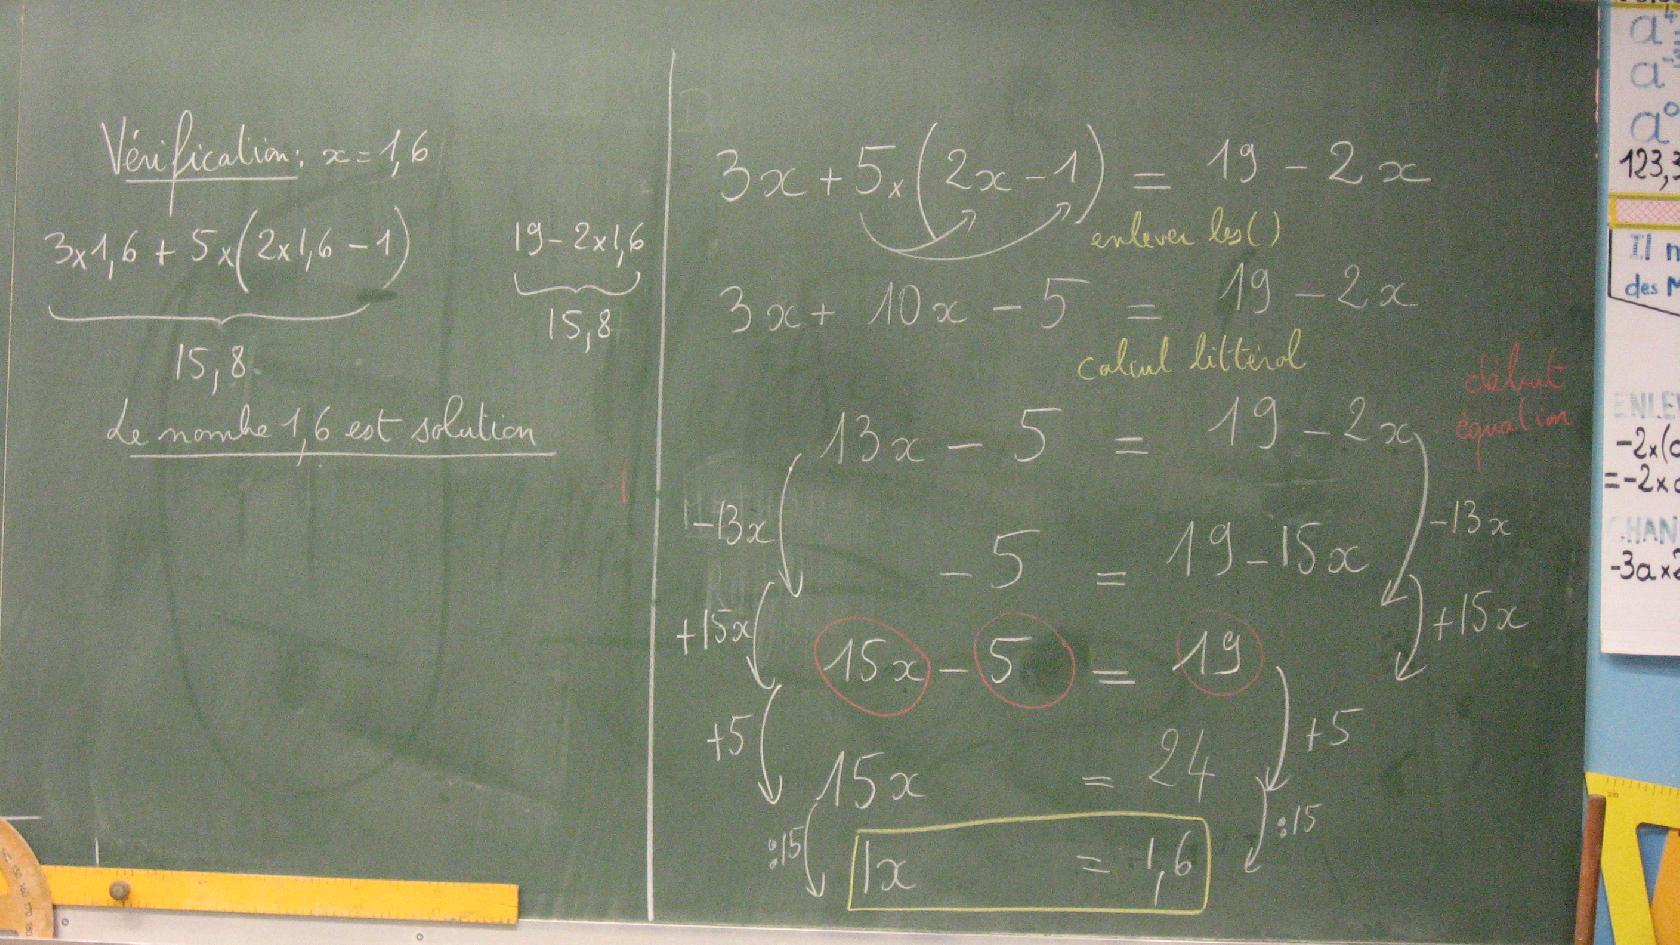 Vérification: x = 1,6
3x1,6 + 5x(2x1,6 - 1)
19 - 2x1,6
15,8
15,8
Le nombre 1,6 est solution
-1
3x + 5x(2x - 1) = 19 - 2x
enlever les ()
3x + 10x - 5 = 19 - 2x
calcul littéral
début
équation
13x - 5 = 19 - 2x
-13x
-13x
- 5 = 19 - 15x
+15x
+15x
15x - 5 = 19
+5
+5
15x = 24
:15
:15
1x = 1,6
a
a
a⁰
123,3
Il n
des M
-2x(
= -2x
-3ax2